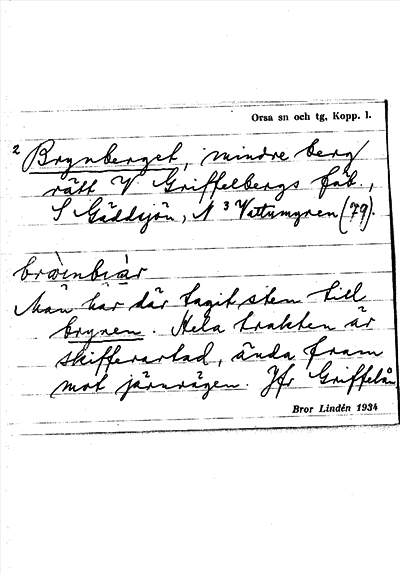 Orsa sn och tg, Kopp. l.
2 Brynberget, mindre berg
rätt V Griffelbergs fäb.,
S Gäddsjön, N 3 Vattumyren (79).
bròinbiàr
Man har där tagit sten till
brynen. Hela trakten är
skifferartad, ända fram
mot järnvägen. Jfr Griffelån
Bror Lindén 1934